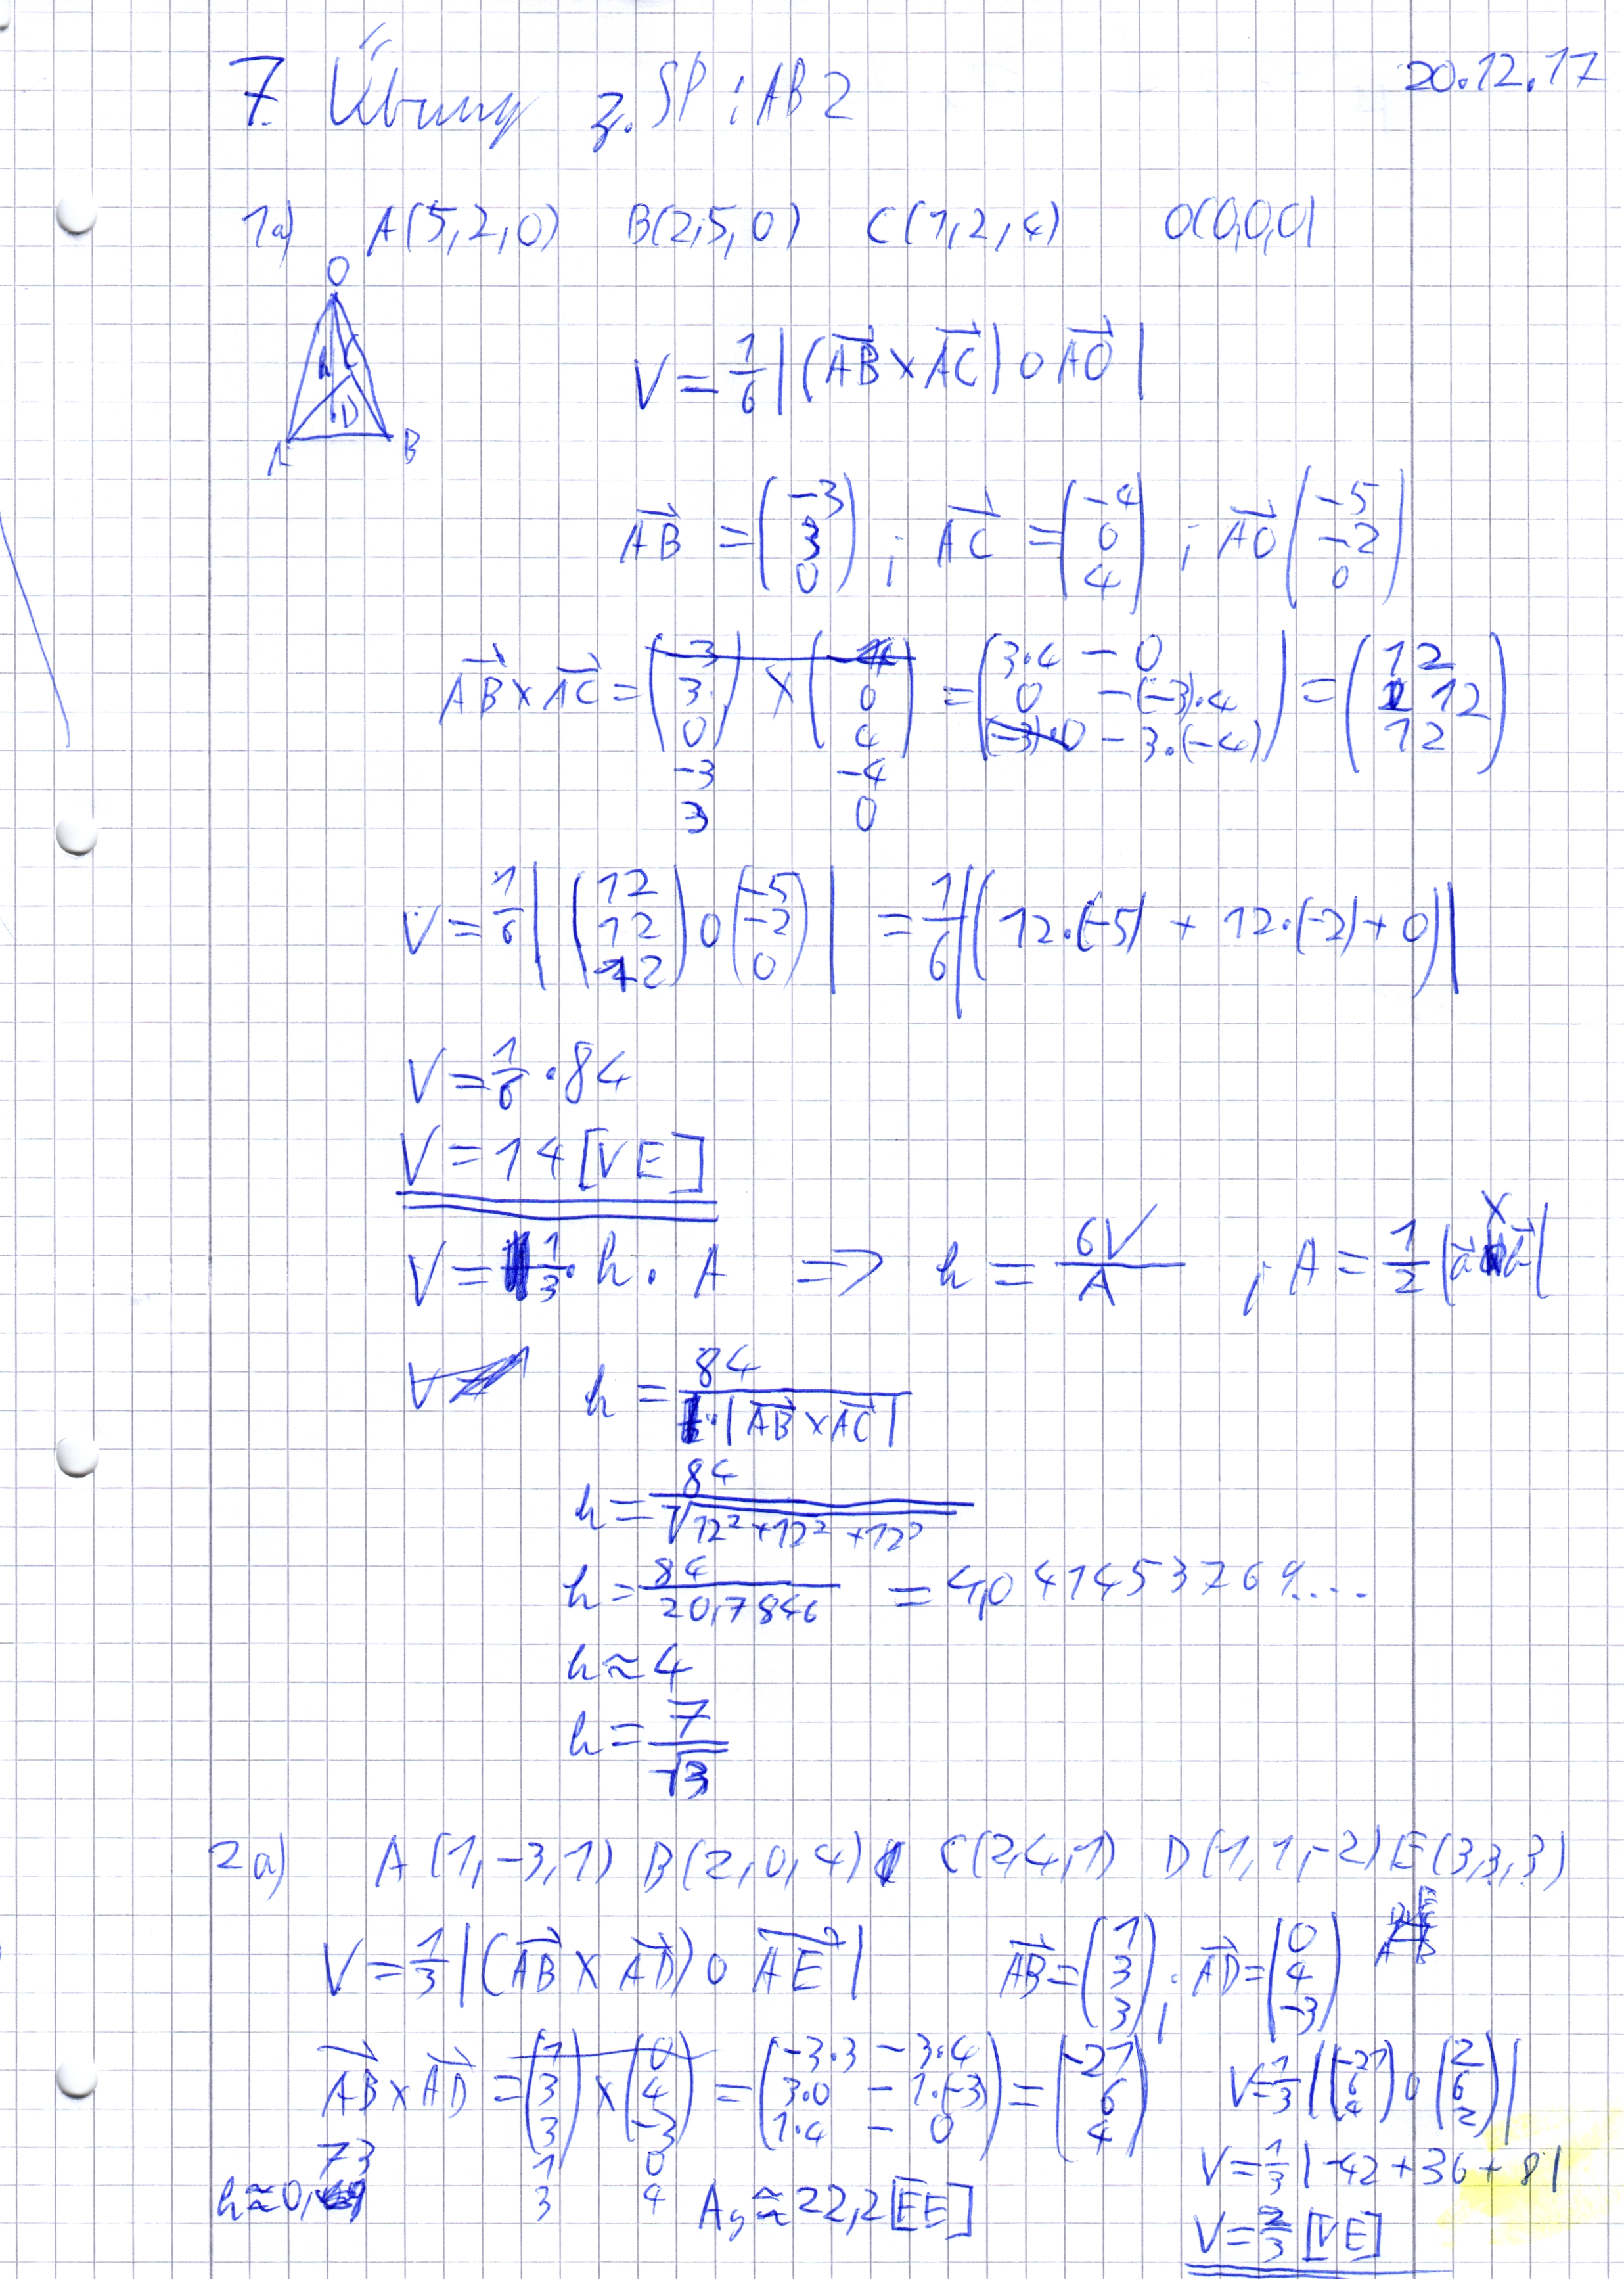 7. Übung z. SP : AB 2
20.12.17
1a) A(5,2,0) B(2,5,0) C(1,2,4) O(0,0,0)
O
h C
D
A B
V = 1/6 |(AB × AC) ∘ AO|
AB = (-3 3 0) ; AC = (-4 0 4) ; AO (-5 -2 0)
AB × AC = (-3 3 0) × (-4 0 4) = (3·4 - 0 0 - (-3)·4 (-3)·0 - 3·(-4)) = (12 12 12)
-3 -4
3 0
V = 1/6 |(12 12 12) ∘ (-5 -2 0)| = 1/6 |(12·(-5) + 12·(-2) + 0)|
V = 1/6 · 84
V = 14 [VE]
V = 1/3 · h · A => h = 6V/A ; A = 1/2 |a ×
h = 84 / |AB × AC|
h = 84 / √12² + 12² + 12²
h = 84 / 20,7846 = 4,041453769...
h ≈ 4
h = 7/√3
2a) A(1,-3,1) B(2,0,4) C(2,4,1) D(1,1,-2) E(3,3,3)
V = 1/3 |(AB × AD) ∘ AE| AB = (1 3 3) ; AD = (0 4 -3)
AB × AD = (1 3 3) × (0 4 -3) = (-3·3 - 3·4 3·0 - 1·(-3) 1·4 - 0) = (-21 6 4) V = 1/3 |(-21 6 4) ∘ (2 6 2)|
1 0
3 4
V = 1/3 |-42 + 36 + 8|
h ≈ 0, 73 A ≈ 22,2 [FE]
V = 2/3 [VE]